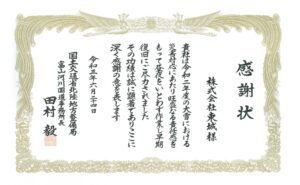 感謝状
株式会社東城様
貴社は令和二年度の大雪における
災害対応にあたり旺盛なる責任感を
もって昼夜をいとわず作業し早期
復旧にご尽力されました
その功績は誠に顕著でありここに
深く感謝の意を表します
令和三年六月二十四日
国土交通省北陸地方整備局
富山河川国道事務所長
田村毅